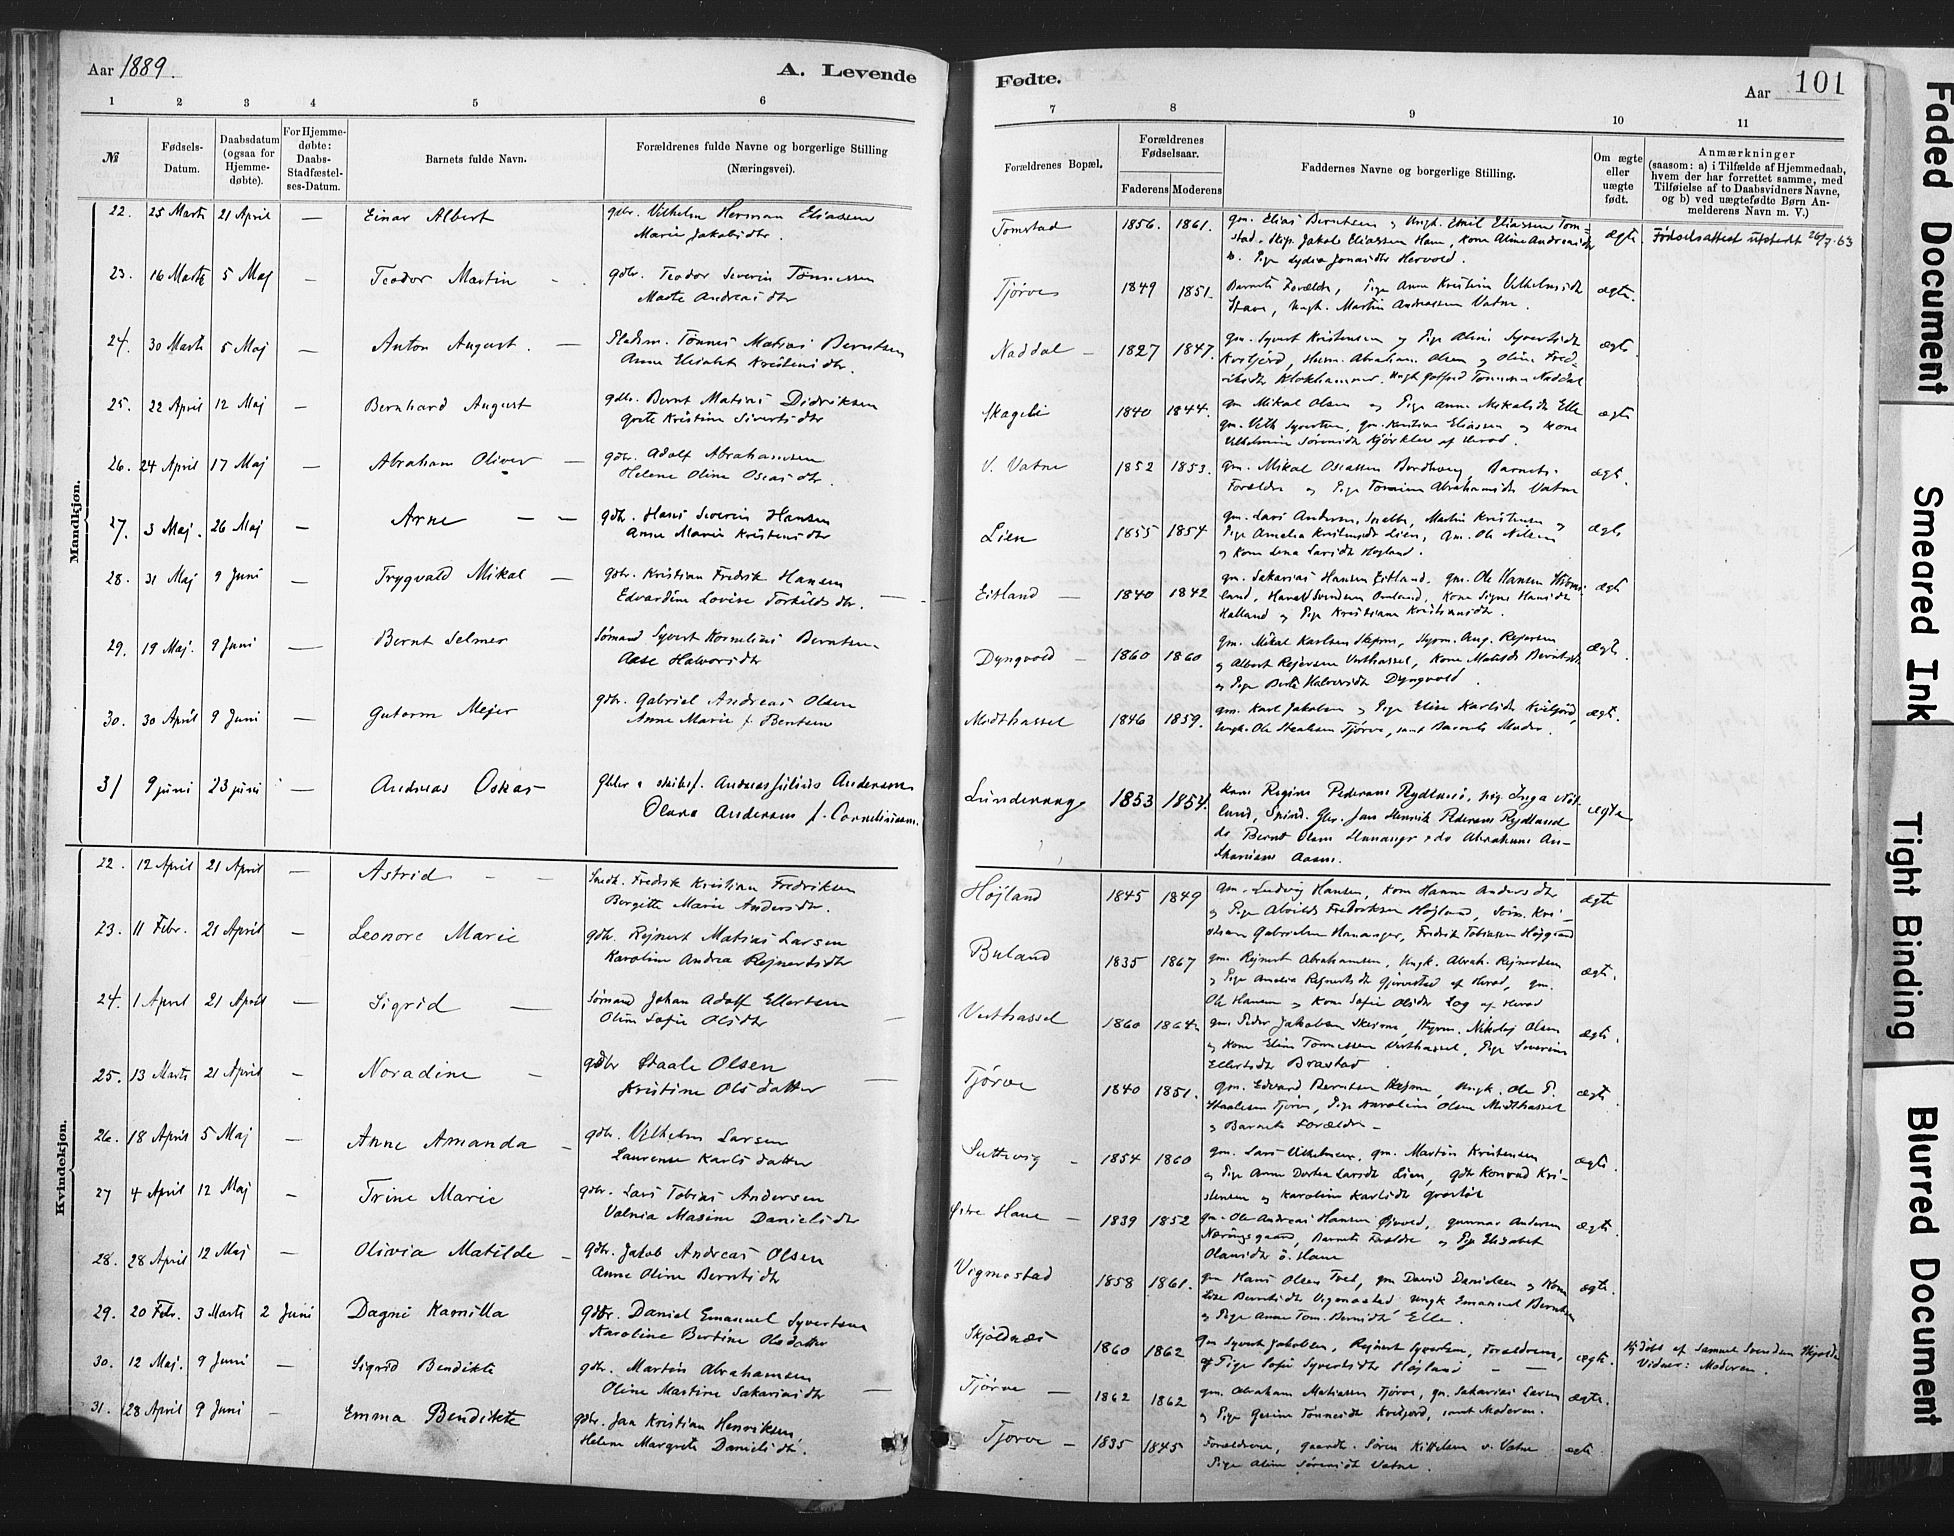 Aar 1889.
A. Levende
Fødte.
Aar 101
1 2 3 4 5 6
7 8 9 10 11
№
Fødsels-
Datum.
Daabsdatum
(ogsaa for
Hjemme-
døbte).
For Hjemme-
døbte:
Daabs-
Stadfæstel-
ses-Datum.
Barnets fulde Navn.
Forældrenes fulde Navne og borgerlige Stilling
(Næringsvei).
Forældrenes Bopæl.
Forældrenes
Fødselsaar.
Faderens Moderens
Faddernes Navne og borgerlige Stilling.
Om ægte
eller
uægte
født.
Anmærkninger
(saasom: a) i Tilfælde af Hjemmedaab,
hvem der har forrettet samme, med
Tilføielse af to Daabsvidners Navne,
og b) ved uægtefødte Børn An-
melderens Navn m. V.)
Mandkjøn.
22. 25 Marts 21 April — Einar Albert gdbr. Vilhelm Herman Eliassen
Marie Jakobsdtr.
Tomstad 1856. 1861. gm. Elias Berntsen og Ungk. Emil Eliassen Tom-
stad. Jakob Eliassen Hane, Kone Aline Andreasdtr
Pige Lydia Jonasdtr
ægte. Fødselsattest utstedt 26/7-63
23. 16 Marts 5 Maj — Teodor Martin gdbr. Teodor Severin Tønnessen
Marte Andreasdtr
Tjørve 1849 1851. Barnets Forældre, Pige Anne Kristine Vilhelmsdtr
Ungk. Martin Andreassen Vatne.
ægte.
24. 30 Marts 5 Maj — Anton August. — Pladsm. Tønnes Matias Berntsen
Anne Elisabet Kristensdtr.
Naddal — 1827 1847. gm. Syvert Kristensen og Pige Aline Syvertsdtr
Kvitfjord, Abraham Olsen og Oline Fred-
riksdtr Klokhammer. Ungk Tønnessen Naddal
ægte
25. 22 April 12 Maj — Bernhard August gdbr. Bernt Matias Didriksen
Grete Kristine Sivertsdtr
1840 1844. gm Mikal Olsen og Pige Anne Mikalsdtr Elle
gm. Syvertsen, gm. Kristian Eliassen og Kone
Vilhelmine af Herad.
ægte
26. 24 April 17 Maj — Abraham Oliver — gdbr. Adolf Abrahamsen
Helene Oline Oseasdtr.
V. Vatne 1852 1853. gm. Mikal Oseassen Barnets
Forældre og Pige Abrahamsdtr Vatne
ægte.
27. 3 Maj. 26 Maj — Arne — — gdbr. Hans Severin Hansen
Anne Marie Kristensdtr
Lien 1855 1854 gm. Lars Andersen, Martin Kristensen og
Pige Amalia Kristensdtr Lien, gm. Ole Nilsen
og Kone Lena Larsdtr Højland.
ægte
28. 31 Maj 9 Juni — Trygvald Mikal — gdbr. Kristian Fredrik Hansen
Edvardine Lovise Torkildsdtr. —
Eitland — 1840 1842 gm. Sakarias Hansen Eitland, gm. Ole Hansen
land, Harald Svendsen Kone Signe Hansdtr
Halland og Pige Kristiane Kristiansdtr.
ægte
29. 19 Maj. 9 Juni — Bernt Selmer Sømand Syvert Kornelius Berntsen
Aase Halvorsdtr
Dyngvold — 1860 1860 gm. Mikal Karlsen Skjerm, Styrm. Aug. Rejersen
og Albert Rejersen Vesthassel, Kone Matilde Berntsdtr
og Pige Berte Halvorsdtr Dyngvold.
ægte.
30. 30 April 9 Juni — Gutorm Mejer gdbr. Gabriel Andreas Olsen
Anne Marie f. Bentsen
Midthassel 1846 1859. gm. Karl Jakobsen og Pige Elise Karlsdtr Kvitfjord,
Ungk. Ole Staalesen Tjørve, samt Barnets Moder.
ægte.
31 9 juni 23 juni — Andreas Oskar Gbbr. & skibsf. Andreas Julius Andersen
Olava Andersen f. Corneliussen.
Lundevaag 1853 1854. Kone Regine Pedersen Rydland, pig. Inga
lund, Gbr. Jens Henrik Pedersen Rydland
do Bernt Olsen Hananger & do Abraham An-
ægte
Kvindekjøn.
22. 12 April 21 April — Astrid — — Smedm. Fredrik Kristian Fredriksen
Bergitte Marie Andersdtr.
Højland 1845 1849 gm. Ludvig Hansen, Kone Hanne Andersdtr
og Pige Alvilde Fredriksen Højland, Kri-
stian Gabrielsen Hananger, Fredrik Tobiassen
ægte
23. 11 Febr. 21 April — Leonore Marie gdbr. Rejnert Matias Larsen
Karoline Andrea Rejnertsdtr
Buland 1835 1867 gm. Rejnert Abrahamsen, Ungk. Abrah. Rejnertsen
og Pige Amalia Rejnertsdtr af Herad, gm.
Ole Hansen og Kone Sofie Olsdtr Log af Herad
ægte.
24. 1 April 21 April Sigrid — Sømand Johan Adolf Ellertsen
Oline Sofie Olsdtr —
Vesthassel 1860 1864. gm. Peder Jakobsen Styrm. Nikolaj Olsen
og Kone Eline Tønnessen Vesthassel, Pige Severine
Ellertsdtr Brastad.
ægte.
25. 13 Marts 21 April — Noradine — gdbr Staale Olsen
Kristine Olsdatter —
Tjørve 1840 1851. gm. Edvard Berntsen Ungk. Ole P.
Staalesen Tjørve, Pige Karoline Olsen Midthassel
og Barnets Forældre —
ægte.
26. 18 April 5 Maj — Anne Amanda — gdbr. Vilhelm Larsen
Laurense Karlsdatter
— 1854 1860 gm. Lars Vilhelmsen, gm. Martin Kristensen
og Pige Anne Dortea Larsdtr Lien, gdbr Konrad Kri-
stensen og Karoline Karlsdtr
ægte.
27 4 April 12 Maj — Trine Marie gdbr. Lars Tobias Andersen
Valnia Masine Danielsdtr
Østre Hane — 1839 1852 gm. Ole Andreas Hansen Gunnar Andersen
Barnets Forældre og Pige Elisabet
Olausdtr ø. Hane
ægte
28. 28 April 12 Maj — Olivia Matilde — gdbr. Jakob Andreas Olsen
Anne Oline Berntsdtr
Vigmostad 1858 1861. gm Hans Olsen Tvet, gm David Danielsen og Kone
Lise Berntsdtr Vigmostad, Ungk Emanuel Berntsen
og Pige Anne Tom. Berntsdtr Elle.
ægte.
29. 20 Febr. 3 Marts 2 Juni Dagni Kamilla gdbr. Daniel Emanuel Syvertsen
Karoline Bertine Olsdatter
Skjoldnæs 1860 1862 gm Syvert Jakobsen, Rejnert Syvertsen, Forældrene,
og Pige Sofie Syvertsdtr Højland — —
ægte. Hjdøbt af Samuel Svendsen
Vidner: Moderen.
30. 12 Maj. 9 Juni — Sigrid Bendikte gdbr. Martin Abrahamsen
Oline Martine Sakariasdtr —
Tjørve — 1862 1862 gm. Abraham Matiassen Tjørve, gm. Sakarias Larsen
og Pige Gesine Tønnesdtr Kvitfjord, samt Moderen.
ægte.
31. 28 April 9 Juni - Emma Bendikte gdbr. Jan Kristian Henriksen
Helene Margrete Danielsdtr.
Tjørve — 1835 1845 Forældrene, gaardbr. Søren Kittelsen v. Vatne
Pige Aline Sørensdtr Vatne.
ægte.
Faded Document
Smeared Ink
Tight Binding
Blurred Document